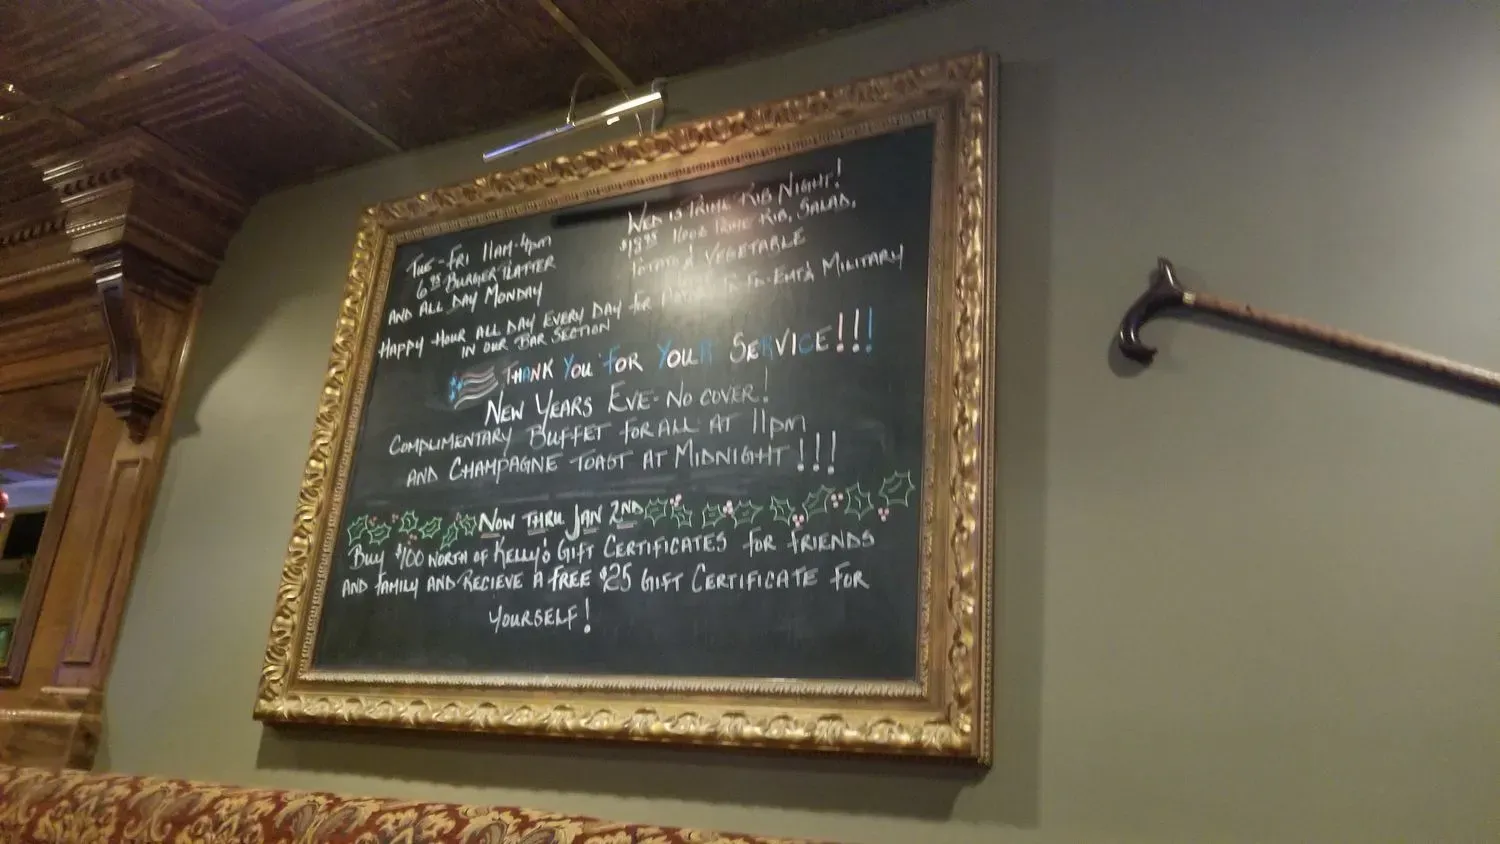 Tue-Fri 11am-4pm
6.95 Burger Platter
and all day Monday
Wed is Prime Rib Night!
$18.95 16oz Prime Rib, Salad,
Potato & Vegetable
Happy Hour all day every day for in our Bar Section
Military
Thank You for Your Service!!!
New Years Eve - No cover!
Complimentary Buffet for all at 11pm
and Champagne Toast at Midnight!!!
Now thru Jan 2nd
Buy $100 worth of Kelly's Gift Certificates for friends
and family and recieve a free $25 Gift Certificate for
yourself!